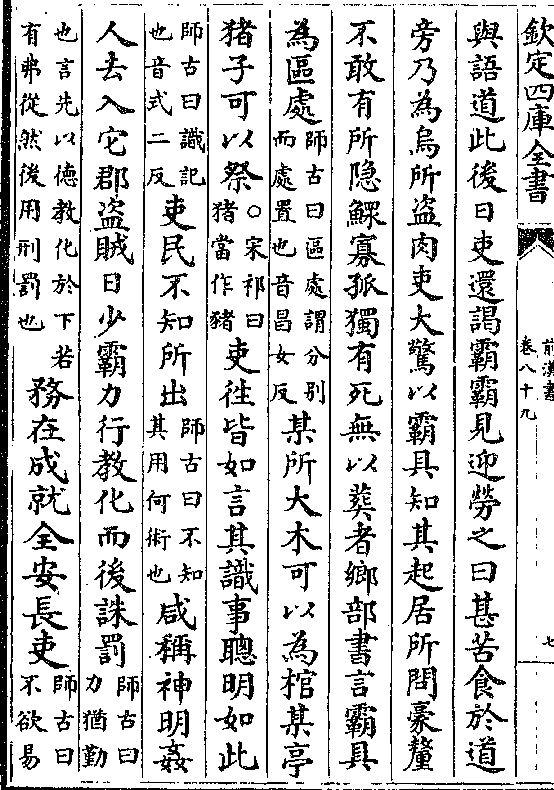 欽定四庫全書
前漢書
卷八十九
七
與語道此後日吏還謁霸霸見迎勞之曰甚苦食於道
旁乃為烏所盗肉吏大驚以霸具知其起居所問豪釐
不敢有所隐鰥寡孤獨有死無以葬者鄉部書言霸具
為區處師古曰區處謂分别而處置也音昌女反某所大木可以為棺某亭
猪子可以祭○宋祁曰猪當作豬吏徃皆如言其識事聰明如此
師古曰識記也音式二反吏民不知所出師古曰不知其用何術也咸稱神明姦
人去入它郡盗賊日少霸力行教化而後誅罰師古曰力猶勤
也言先以德教化於下若有弗從然後用刑罰也務在成就全安長吏師古曰不欲易